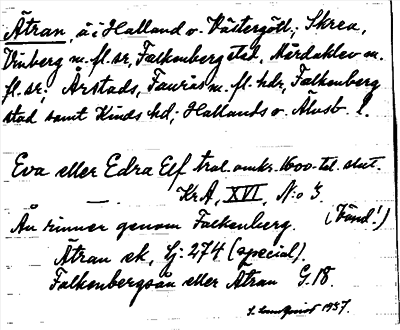 Ätran, å i Halland o. Västergötl.; Skrea,
Vinberg m. fl. sr, Falkenberg stad, Mårdaklev m.
fl. sr; Årstads, Faurås m. fl. hdr, Falkenberg
stad samt Kinds hd; Hallands o. Älvsb. l.
Eva eller Edra Elf trol. omkr. 1600-tal. slut.
— KrA, XVI, N:o 3.
(Fänd!)
Ån rinner genom Falkenberg.
Ätran ek, Lj. 274 (special).
Falkenbergsån eller Ätran G. 18.
S. Lundqvist 1937.